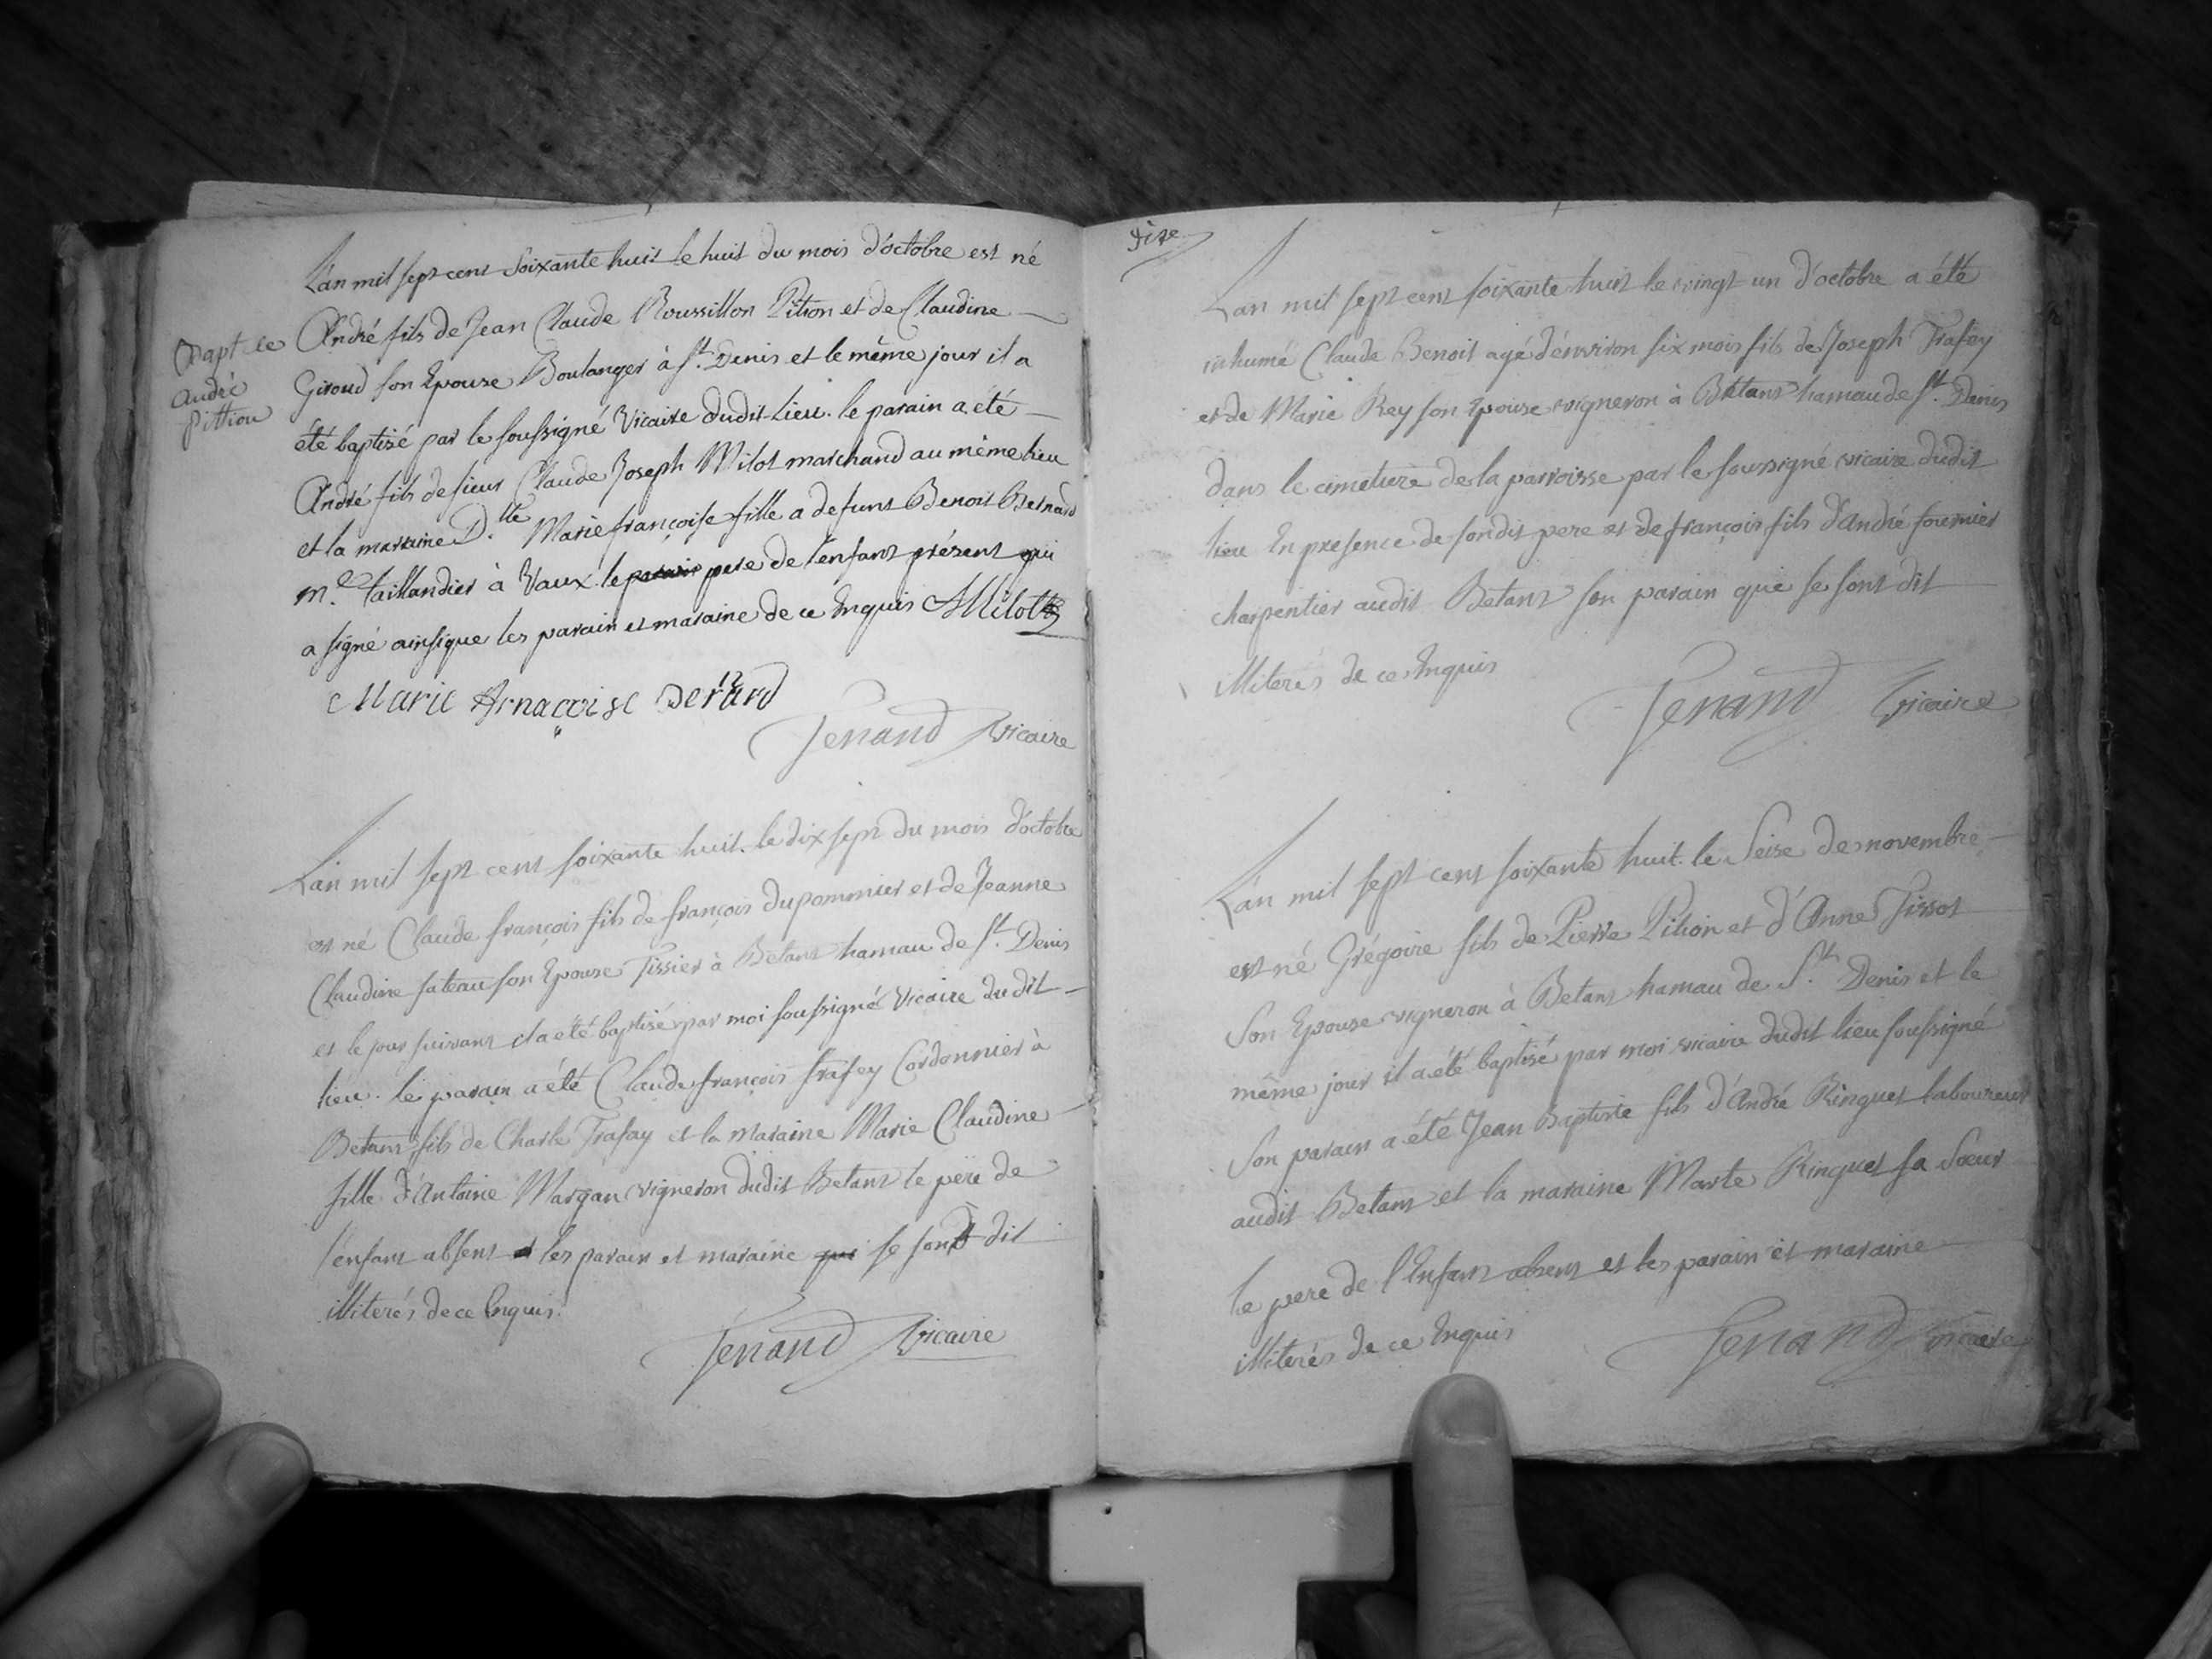 L'an mil sept cent soixante huit le huit du mois d'octobre est né
André fils de Jean Claude Roussillon Pition et de Claudine
Giroud son Epouse Boulanger à St. Denis et le même jour il a
été baptisé par le soussigné Vicaire dudit Lieu. le parain a été
André fils de sieur Claude Joseph Milot marchand au même lieu
et la maraine D.lle Marie françoise fille a defunt Benoit Bernard
m.e taillandier à Vaux le pere de l'enfant présent qui
a signé ainsi que les parain et maraine de ce Enquis AMilot
Marie
Fenand Vicaire
Bapt. de
André
Pittion
L'an mil sept cent soixante huit. le dix sept du mois d'octobre
est né Claude françois fils de françois dupommier et de Jeanne
Claudine fateau son Epouse Tissier à Betant hamau de St. Denis
et le jour suivant il a été baptisé par moi soussigné Vicaire dudit
lieu. le parain a été Claude françois Trafey Cordonnier à
Betant fils de Charle Trafay et la Maraine Marie Claudine
fille d'Antoine Margan vigneron dudit Betant le père de
l'enfant absent les parain et maraine qui se sont dit
illiterés de ce Enquis.
Fenand Vicaire
dize
L'an mil sept cent soixante huit le vingt un d'octobre a été
inhumé Claude Benoit agé d'environ six mois fils de Joseph Trafey
et de Marie Rey son Epouse vigneron à Bétant hamau de St. Denis
dans le cimetiere de la parroisse par le soussigné vicaire dudit
lieu En presence de sondit pere et de françois fils d'André fournier
charpentier audit Betant son parain qui se sont dit
illiterés de ce Enquis
Fenand Vicaire
L'an mil sept cent soixante huit. le Seise de novembre
est né Grégoire fils de Pierre Pition et d'Anne Tissot
Son Epouse vigneron à Betant hamau de St. Denis et le
même jour il a été baptisé par moi vicaire dudit lieu soussigné
Son parain a été Jean Baptiste fils d'André Ringuet laboureur
audit Betant et la maraine Marte Ringuet sa Soeur
le pere de l'Enfant absent et les parain et maraine
illiterés de ce Enquis
Fenand vicaire